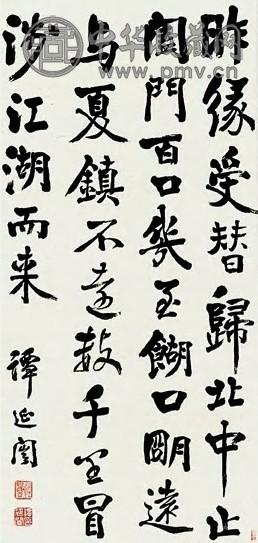 昨緣受替歸北中止
闔門百口幾至餬口朙遠
与夏鎮不遠數千里冒
涉江湖而来
譚延闓
中华收藏网
www.pmv.cn